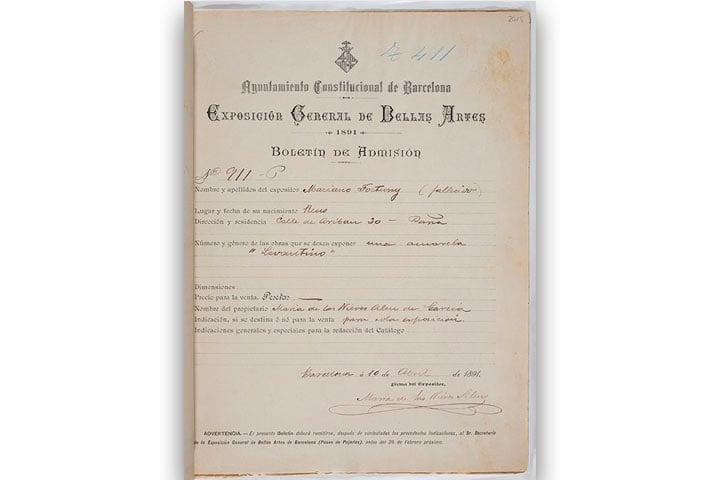 2015
411
Ayuntamiento Constitucional de Barcelona
Exposición General de Bellas Artes
1891
Boletín de Admisión
Nº 911-P
Nombre y apellidos del expositor Mariano Fortuny (fallecido)
Lugar y fecha de su nacimiento Reus
Dirección y residencia Calle de Aribau 30 –
Número y género de las obras que se desea exponer una acuarela
"Levantino"
Dimensiones
Precio para la venta. Pesetas —
Nombre del propietario Maria de las Nieves Aleu de García
Indicación, si se destina ó nó para la venta para sola exposición.
Indicaciones generales y especiales para la redacción del Catálogo
Barcelona á 10 de Abril de 1891.
Firma del Expositor,
Maria de las Nieves Aleu
ADVERTENCIA.—El presente Boletín deberá remitirse, después de contestadas las precedentes indicaciones, al Sr. Secretario
de la Exposición General de Bellas Artes de Barcelona (Paseo de Pujadas), antes del 25 de Febrero próximo.